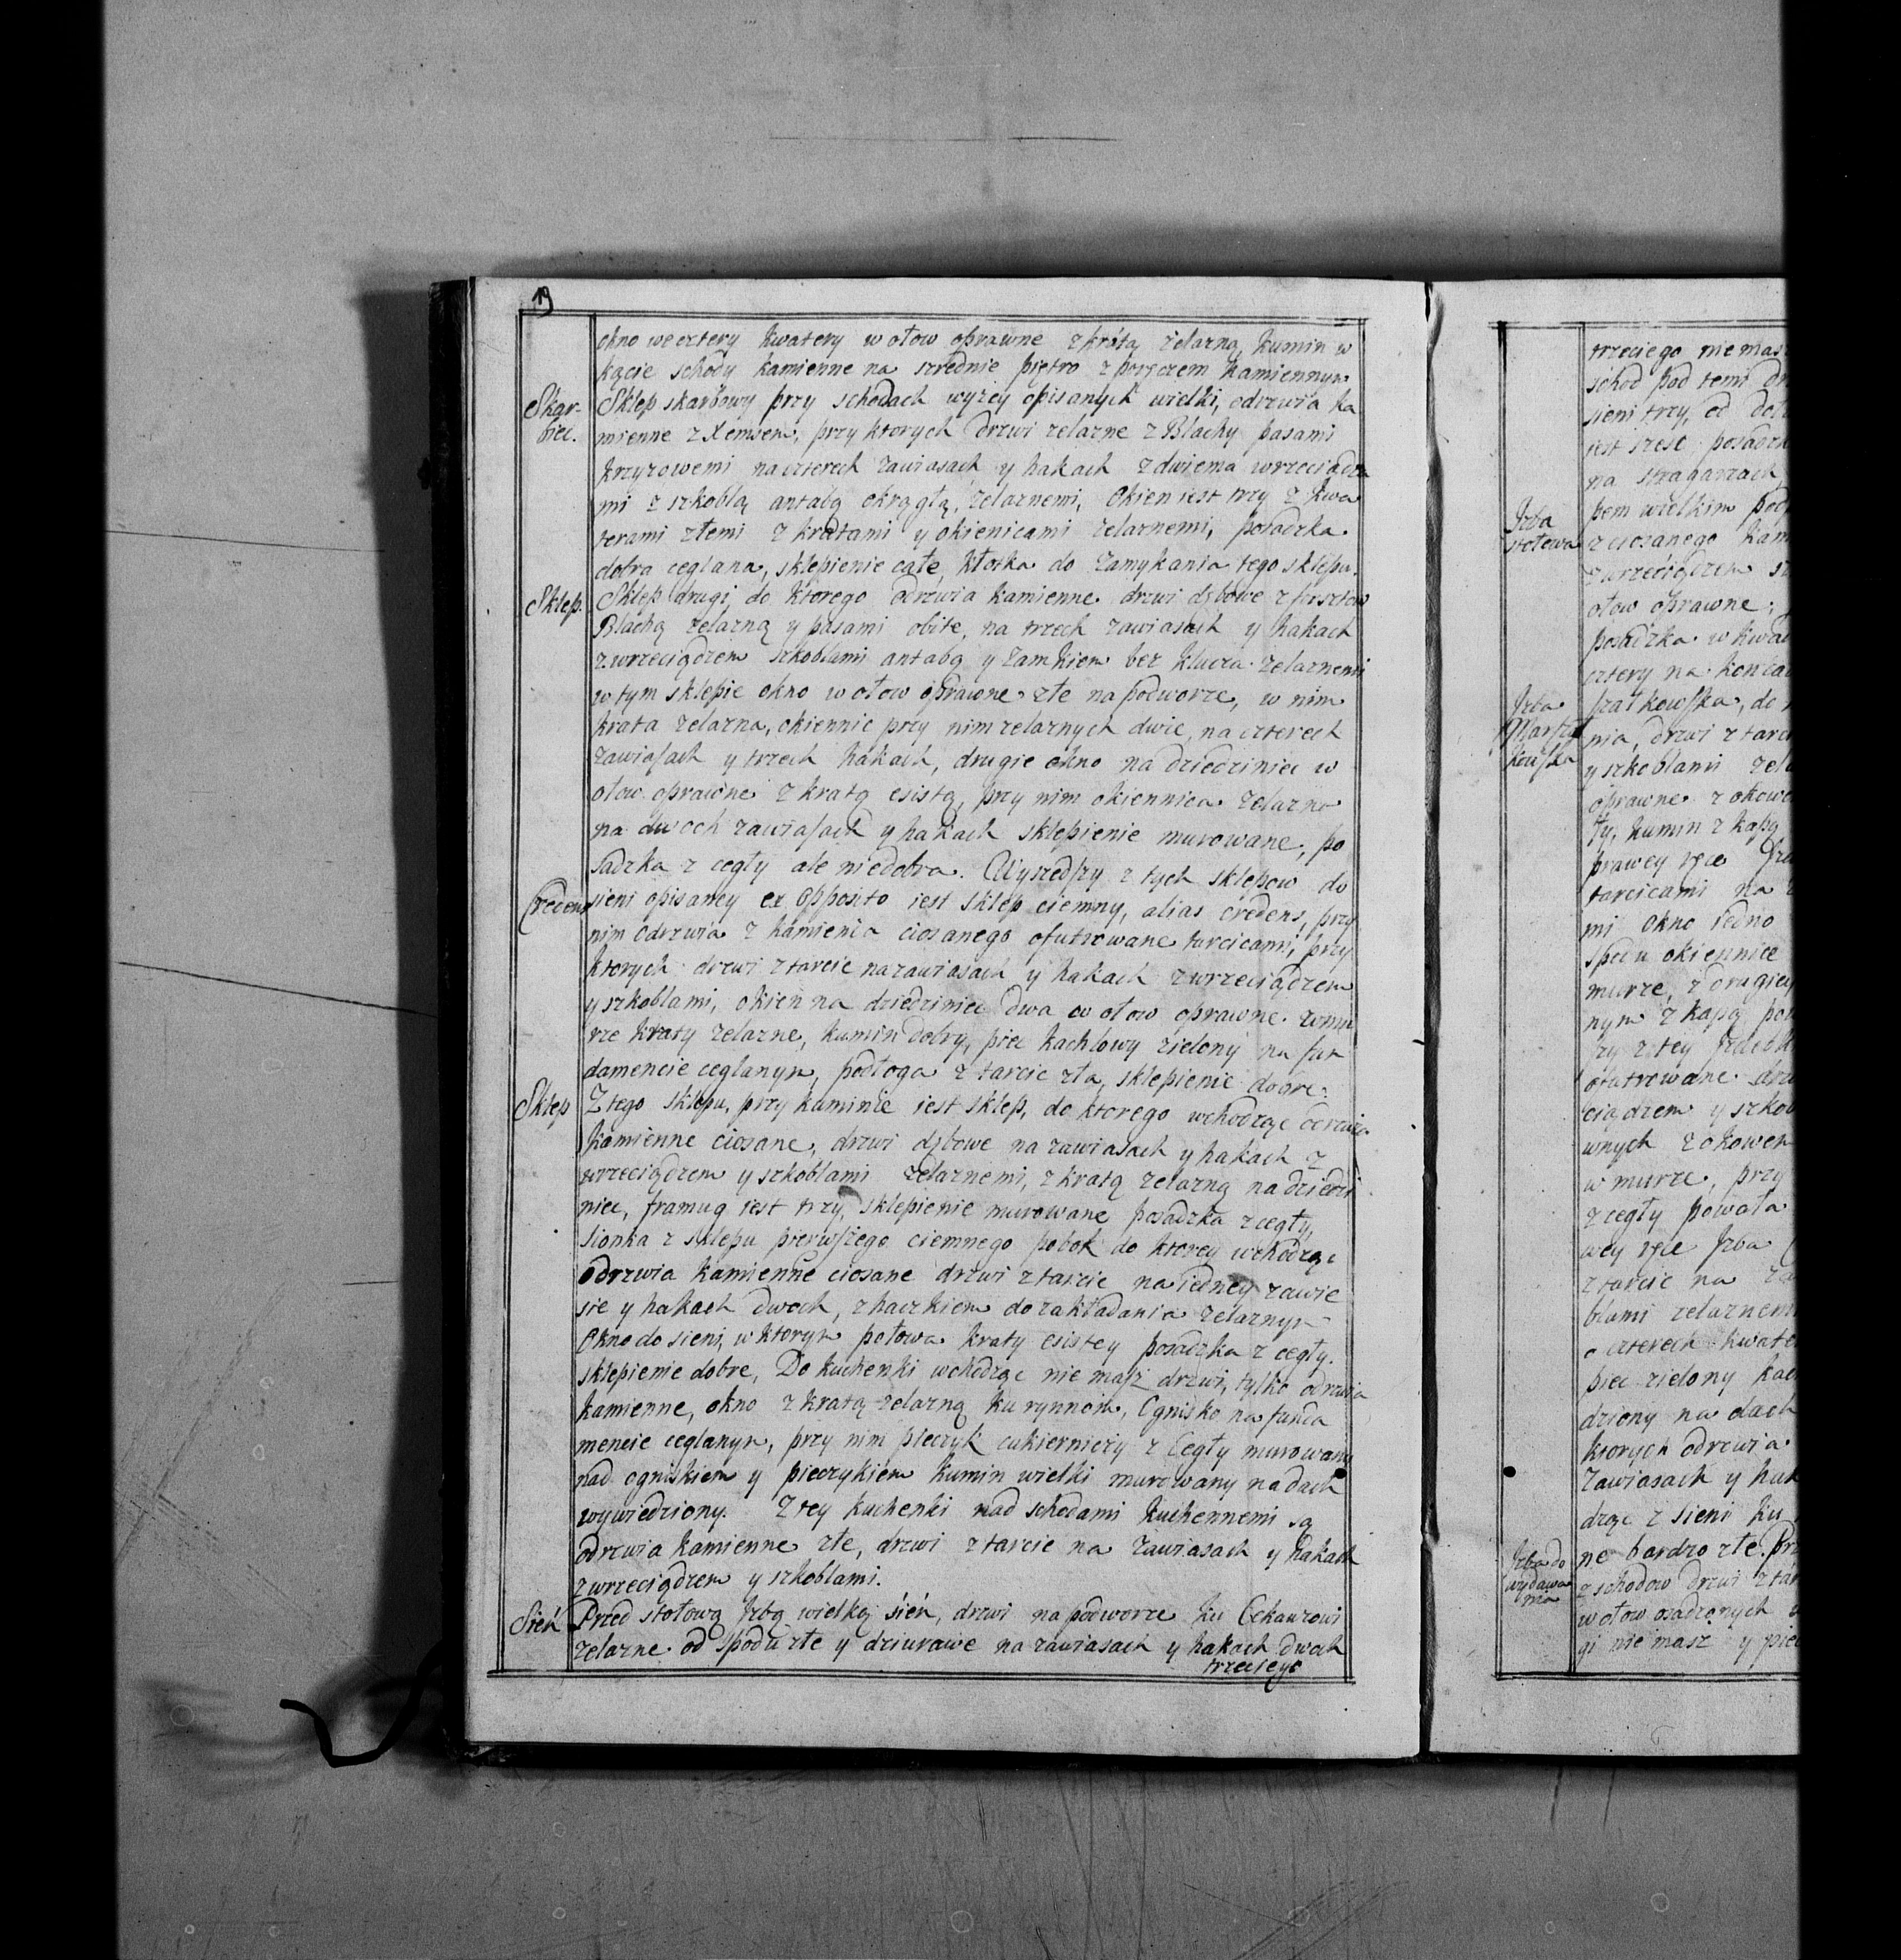 19
okno we cztery kwatery w ołow oprawne z kratą żelazną, kumin w
kącie schody kamienne na szrednie piętro z poręczem kamiennym
Skar-
biec.
Sklep skarbowy przy schodach wyżey opisanych wielki, odrzwia ka
mienne z Xemsem, przy ktorych drzwi zelazne z Blachy pasami
krzyzowemi na czterech zawiasach y hakach z dwiema wrzeciądza
mi z szkoblą antabą okrągłą, zelaznemi, Okien iest trzy z kwa
terami złemi z kratami y okienicami żelaznemi, posadzka
dobra ceglana, sklepienie całe, kłotka do zamykania tego sklepu.
Sklep.
Sklep drugi, do ktorego odrzwia kamienne drzwi dębowe z forsztow
Blachą zelazną y pasami obite, na trzech zawiasach y hakach
z wrzeciądzem szkoblami antabą y zamkiem bez klucza zelaznemi
w tym sklepie okno w ołow oprawne złe na podworze, w nim
krata zelazna, okiennic przy nim zelaznych dwie, na czterech
zawiasach y trzech hakach, drugie okno na dziedziniec w
ołow oprawne z kratą esistą, przy nim okiennica zelazna
na dwoch zawiasach y hakach sklepienie murowane, po
sadzka z cegły ale niedobra. Wyszedszy z tych sklepow do
Credens
sieni opisaney ex opposito iest sklep ciemny, alias credens, przy
nim odrzwia z kamienia ciosanego ofutrowane tarcicami, przy
ktorych drzwi z tarcic na zawiasach y hakach z wrzeciądzem
y szkoblami, okien na dziedziniec dwa w ołow oprawne w mu
rze kraty zelazne, kumin dobry, piec kachlowy zielony na fun
damencie ceglanym, podłoga z tarcic zła, sklepienie dobre.
Sklep
Z tego sklepu, przy kaminie iest sklep, do ktorego wchodząc odrzwia
kamienne ciosane, drzwi dębowe na zawiasach y hakach z
wrzeciądzem y szkoblami zelaznemi, z kratą zelazną na dziedzi
niec, framug iest trzy, sklepienie murowane posadzka z cegły,
Sionka z sklepu pierwszego ciemnego pobok do ktorey wchodząc
odrzwia kamienne ciosane drzwi z tarcic na iedney zawie
sie y hakach dwoch, z haczkiem do zakładania zelaznym
Okno do sieni, w ktorym połowa kraty esistey posadzka z cegły.
sklepienie dobre, Do kuchenki wchodząc nie masz drzwi, tylko odrzwia
kamienne, okno z kratą zelazną ku rynnom, Ognisko na funda
mencie ceglanym, przy nim pieczyk cukierniczy z Cegły murowany
nad ogniskiem y pieczykiem kumin wielki murowany na dach
wywiedziony. Z tey kuchenki nad schodami kuchennemi są
odrzwia kamienne złe, drzwi z tarcic na zawiasach y hakach
z wrzeciądzem y szkoblami.
Sień
Przed stołową Jzbą wielką sień, drzwi na podworze ku Cekauzowi
zelazne od spodu złe y dziurawe na zawiasach y hakach dwoch
trzeciego
trzeciego niemasz
schod pod temi
sieni trzy, od
iest szesc posadzk
na stragarzach
Jzba
stołowa
pem wielkim
z ciosanego kam
z wrzeciądzem
ołow oprawne,
posadzka w kwad
cztery na
Jzba
Marszał
kowska
szałkowska, do
nia, drzwi z tarc
y szkoblami zela
oprawne z okow
ły, kumin z kapą
prawey ręce
tarcicami na
mi Okno iedno
spodu okiennice
murze, z drugiey
nym z kapą
szy z tey
ofutrowane
ciądzem y szkob
wnych z okowem
w murze, przy
z cegły powała
wey ręce Jzba
z tarcic na
blami zelaznem
o czterech kwate
piec zielony kach
dziony na dach
ktorych odrzwia
zawiasach y hak
dząc z sieni ku
Jzba do
wydawa
nia
ne bardzo złe.
z schodow drzwi z tar
w ołow osadzonych
gi nie masz y piec